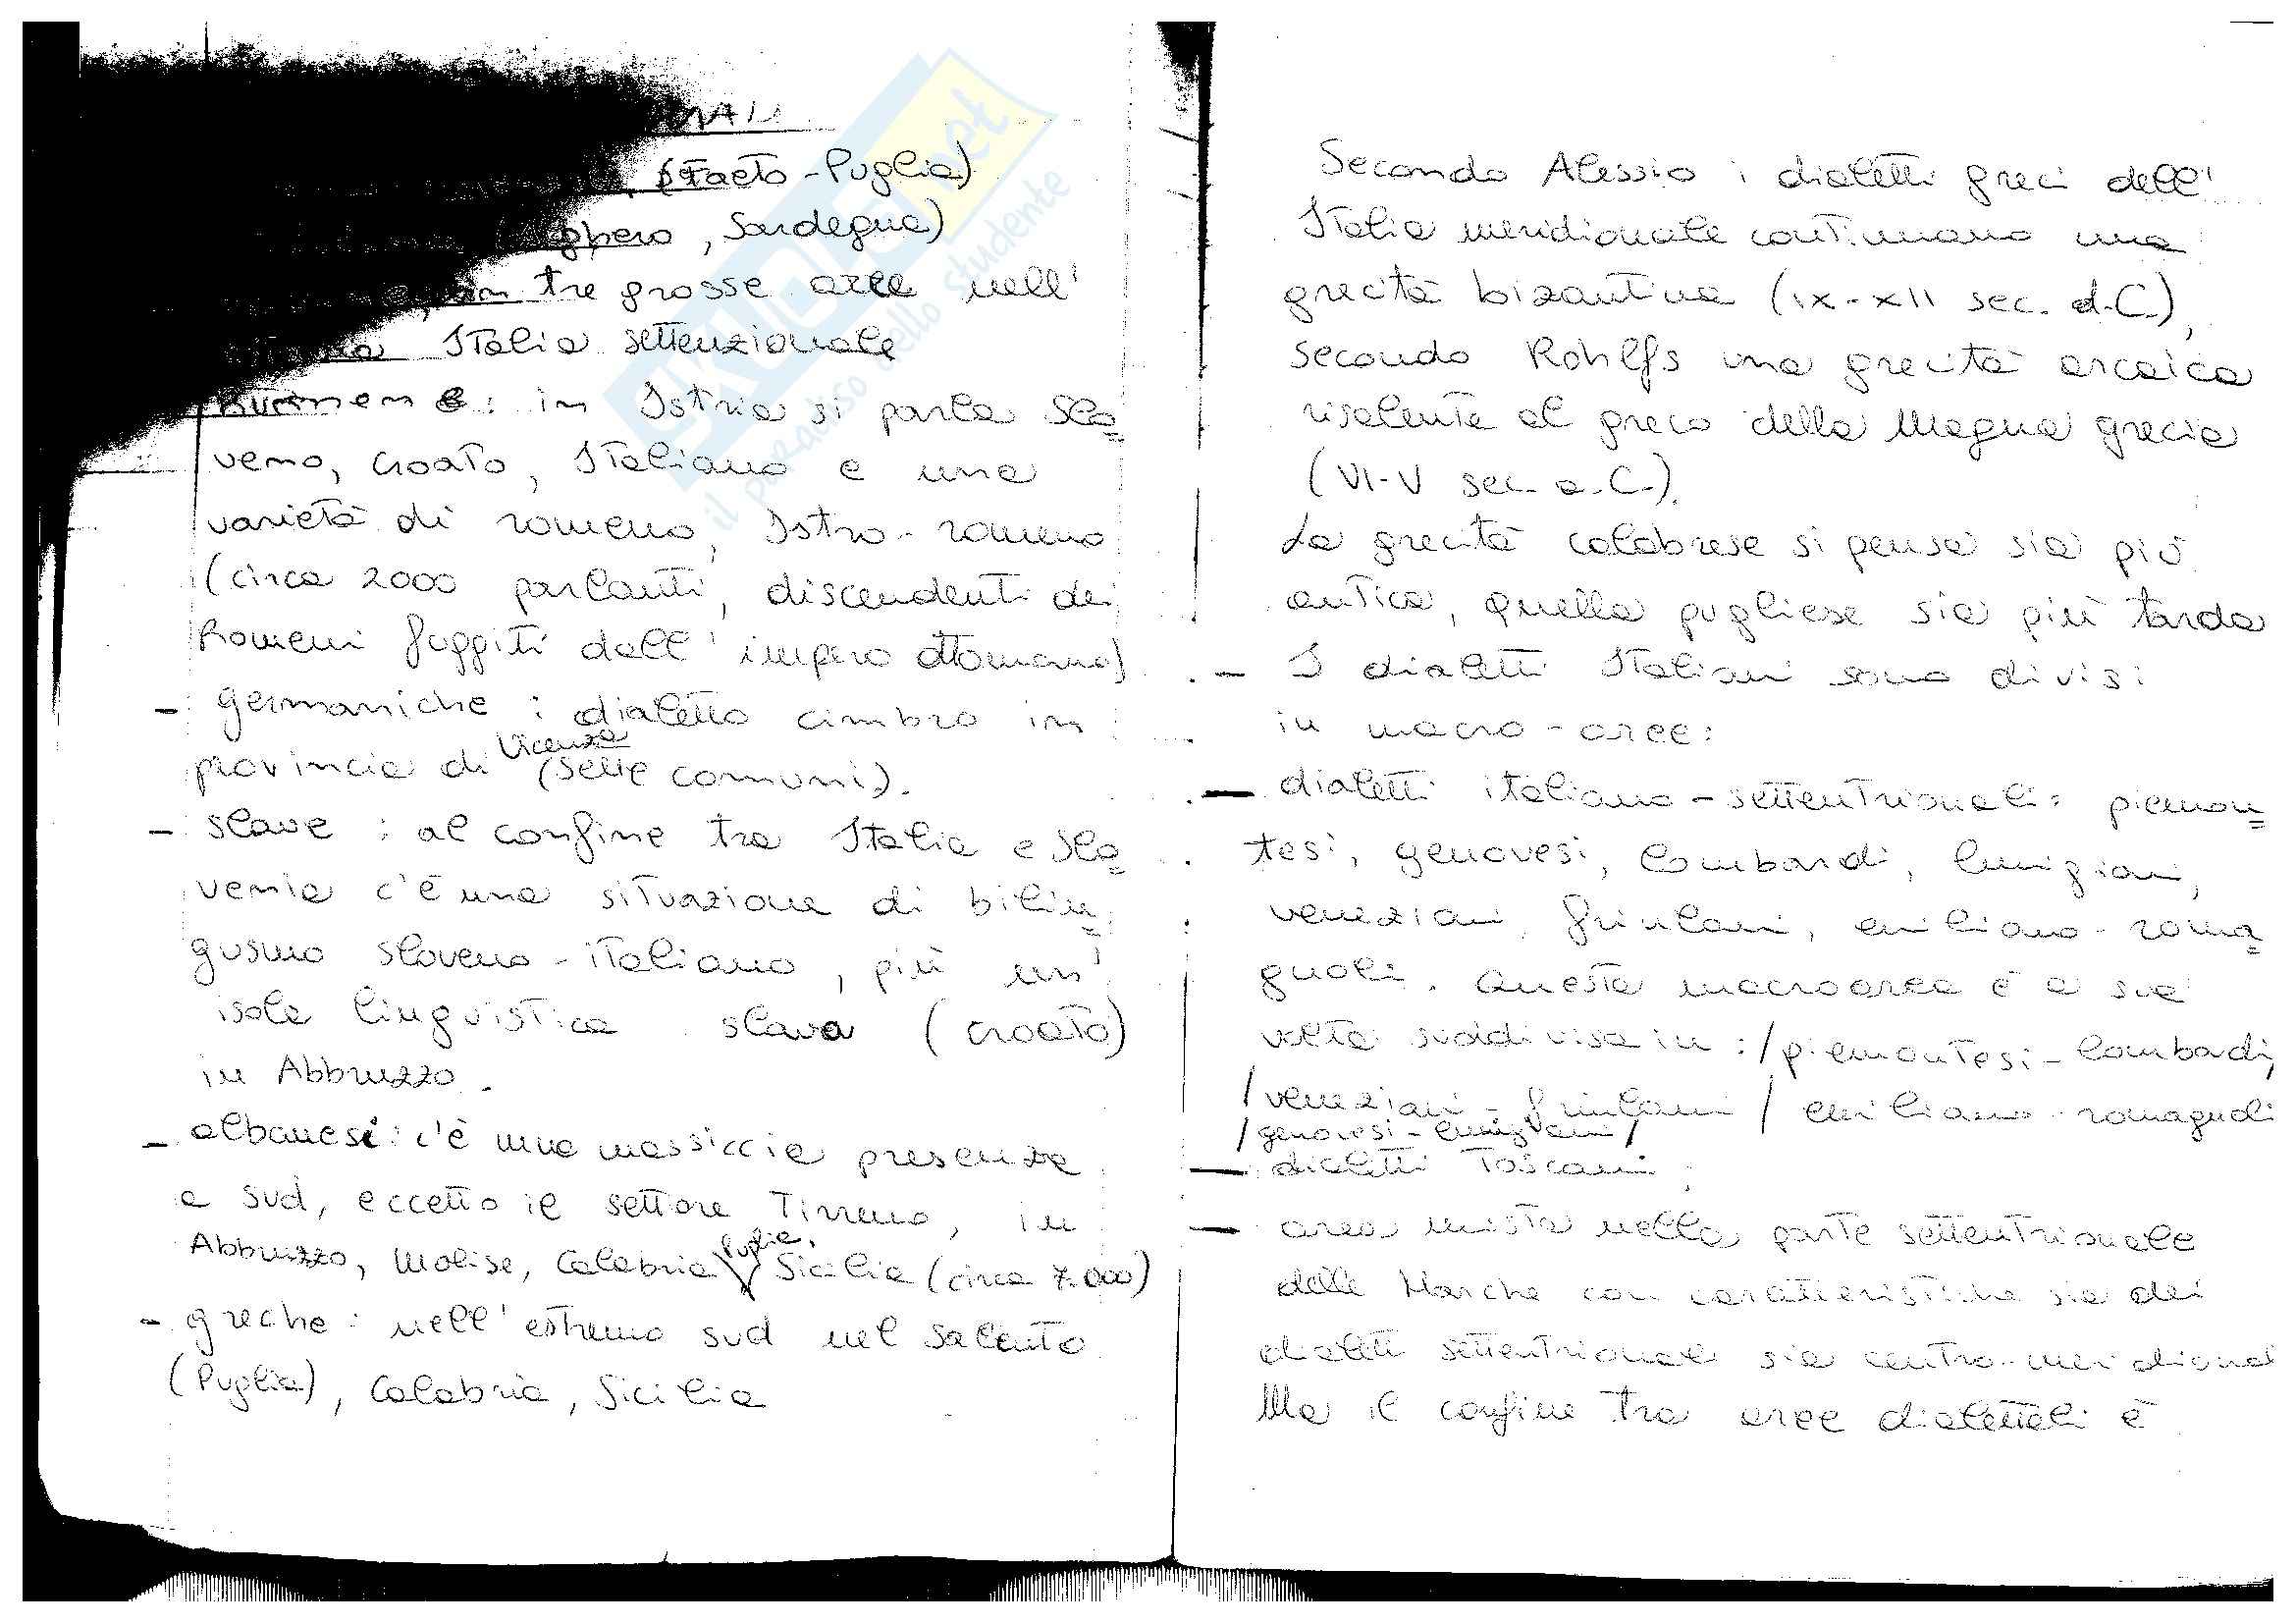 (Faeto - Puglia)
, Sardegna)
tre grosse aree nell'
Italia settenzionale
: in Istria si parla Slo=
veno, croato, Italiano e una
varietà di romeno, Istro-romeno
(circa 2000 parlanti, discendenti dei
Romeni fuggiti dall'impero ottomano)
- germaniche : dialetto cimbro in
Vicenza
provincia di (sette comuni).
- slave : al confine tra Italia e Slo=
venia c'è una situazione di bilin=
gusmo sloveno-italiano, più un'
isola linguistica slava (croato)
in Abbruzzo.
- albanesi: c'è una massiccia presenza
a sud, eccetto il settore Tirreno, in
Puglia,
Abbruzzo, Molise, Calabria Sicilia (circa 7.000)
- greche : nell'estremo sud nel Salento
(Puglia), Calabria, Sicilia
Secondo Alessio i dialetti greci dell'
Italia meridionale continuano una
grecità bizantina (IX-XII sec. d.C),
secondo Rohlfs una grecità arcaica
risalente al greco della Magna grecia
(VI-V sec. a.C.).
La grecità calabrese si pensa sia più
antica, quella pugliese sia più tarda
- I dialetti Italiani sono divisi
in macro-aree:
- dialetti italiano-settentrionali: piemon=
tesi, genovesi, lombardi, lunigiani,
veneziani, friulani, emiliano-roma=
gnoli. Questa macroarea è a sua
volta suddivisa in : / piemontesi - lombardi,
/ veneziani - friulani / emiliano-romagnoli
/ genovesi - lunigiani /
- dialetti Toscani
- area mista nella parte settentrionale
delle Marche con caratteristiche sia dei
dialetti settentrionali sia centro-meridional
Ma il confine tra aree dialettali è
SKUOLA.net
il paradiso dello studente